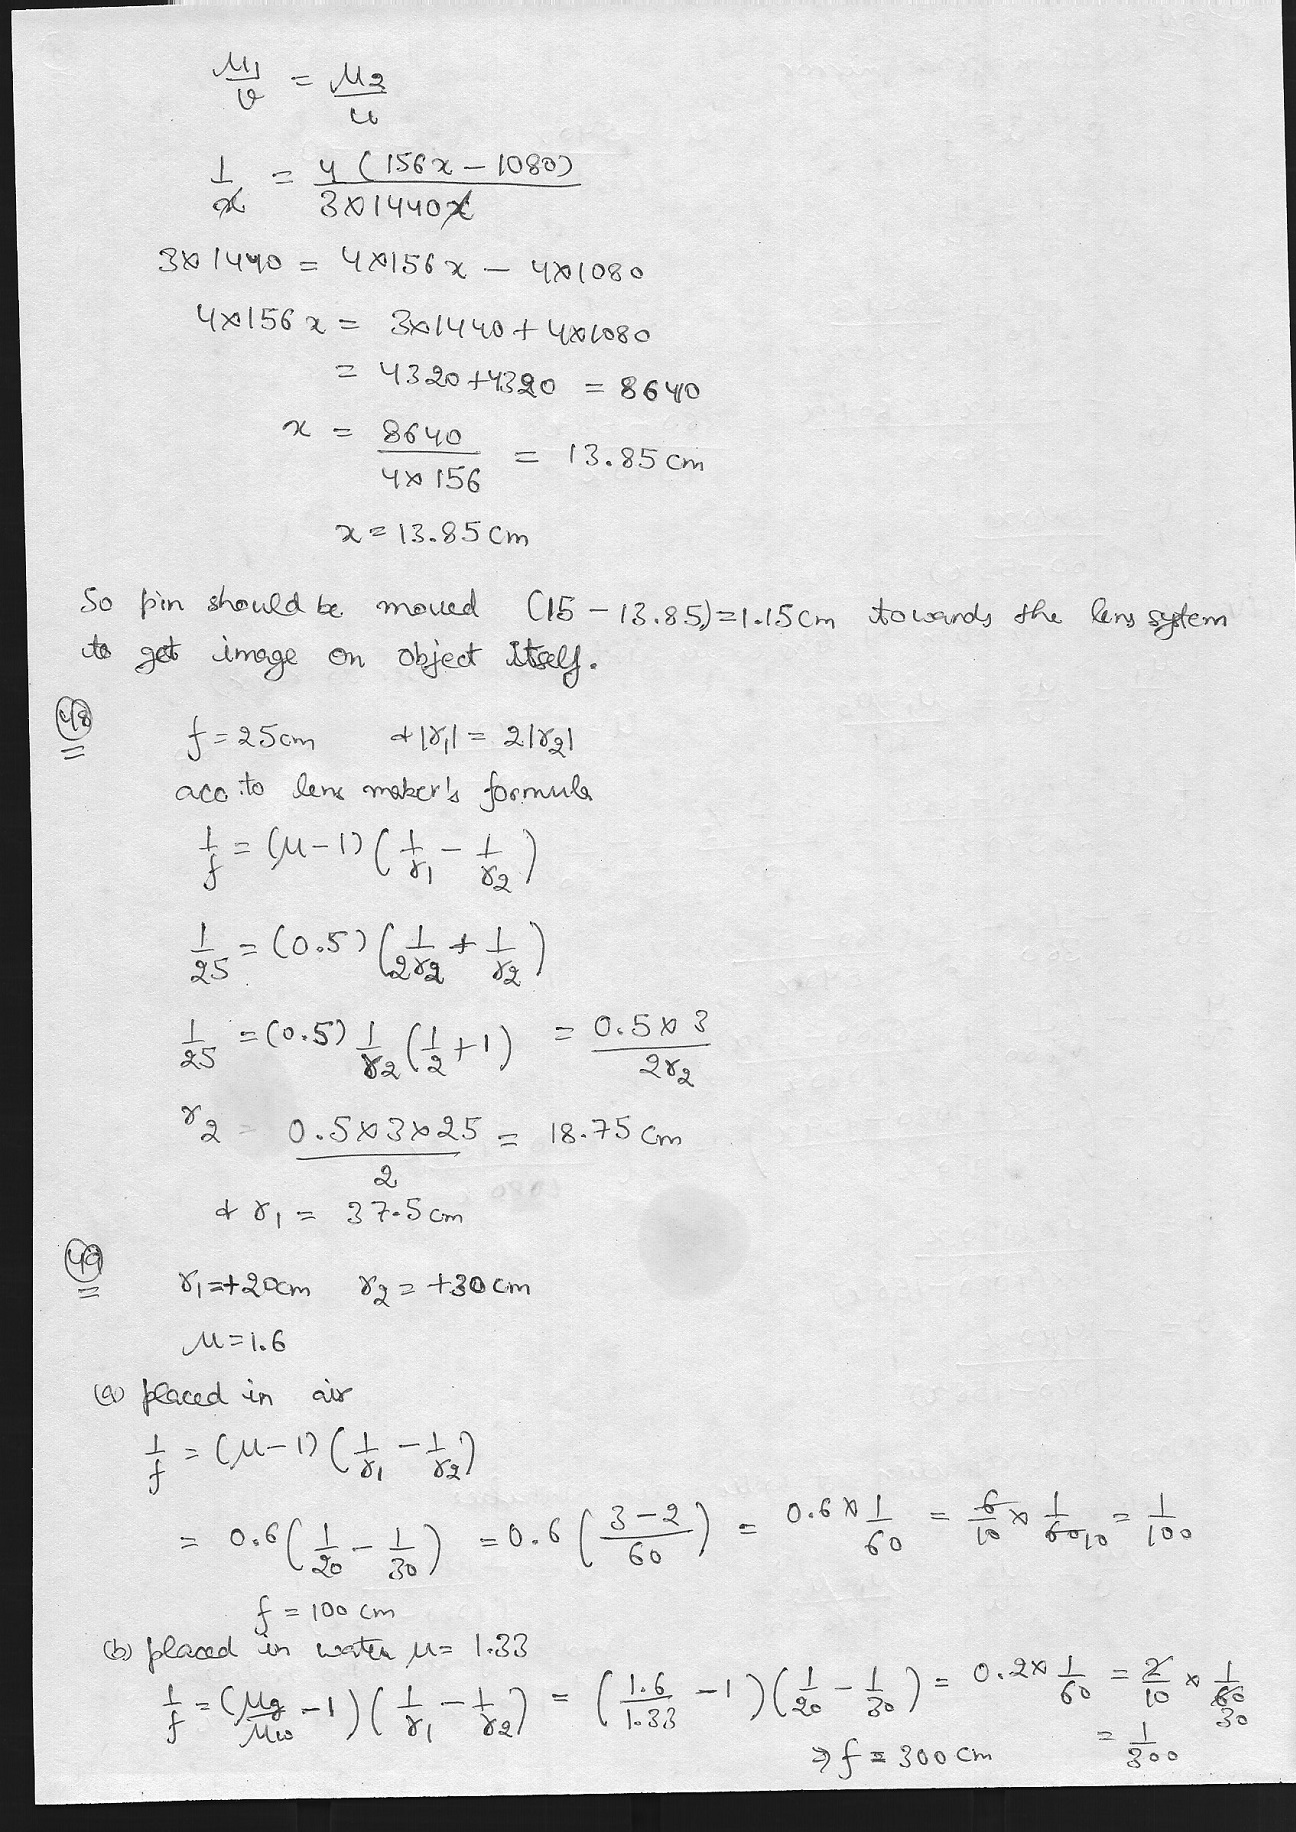 μ₁/v = μ₂/u
1/x = 4(156x – 1080)/3×1440x
3×1440 = 4×156x – 4×1080
4×156x = 3×1440 + 4×1080
= 4320+4320 = 8640
x = 8640/4×156 = 13.85 cm
x = 13.85 cm
So pin should be moved (15 – 13.85) = 1.15 cm towards the lens system
to get image on object itself.
48
f = 25 cm & |r₁| = 2|r₂|
acc. to lens maker's formula
1/f = (μ – 1)(1/r₁ – 1/r₂)
1/25 = (0.5)(1/2r₂ + 1/r₂)
1/25 = (0.5) 1/r₂ (1/2 + 1) = 0.5×3/2r₂
r₂ = 0.5×3×25/2 = 18.75 cm
& r₁ = 37.5 cm
49
r₁ = +20cm r₂ = +30 cm
μ = 1.6
(a) placed in air
1/f = (μ – 1)(1/r₁ – 1/r₂)
= 0.6(1/20 – 1/30) = 0.6(3–2/60) = 0.6×1/60 = 6/10 × 1/60 10 = 1/100
f = 100 cm
(b) placed in water μ = 1.33
1/f = (μg/μw – 1)(1/r₁ – 1/r₂) = (1.6/1.33 – 1)(1/20 – 1/30) = 0.2×1/60 = 2/10 × 1/60 30
= 1/300
⇒ f = 300 cm